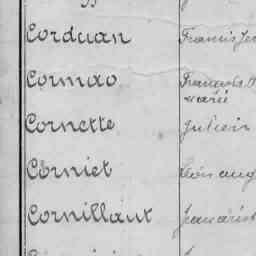 Corduan Francis
Cormao François
Marie
Cornette Julien
Corniet Léon aug
Cornillaut